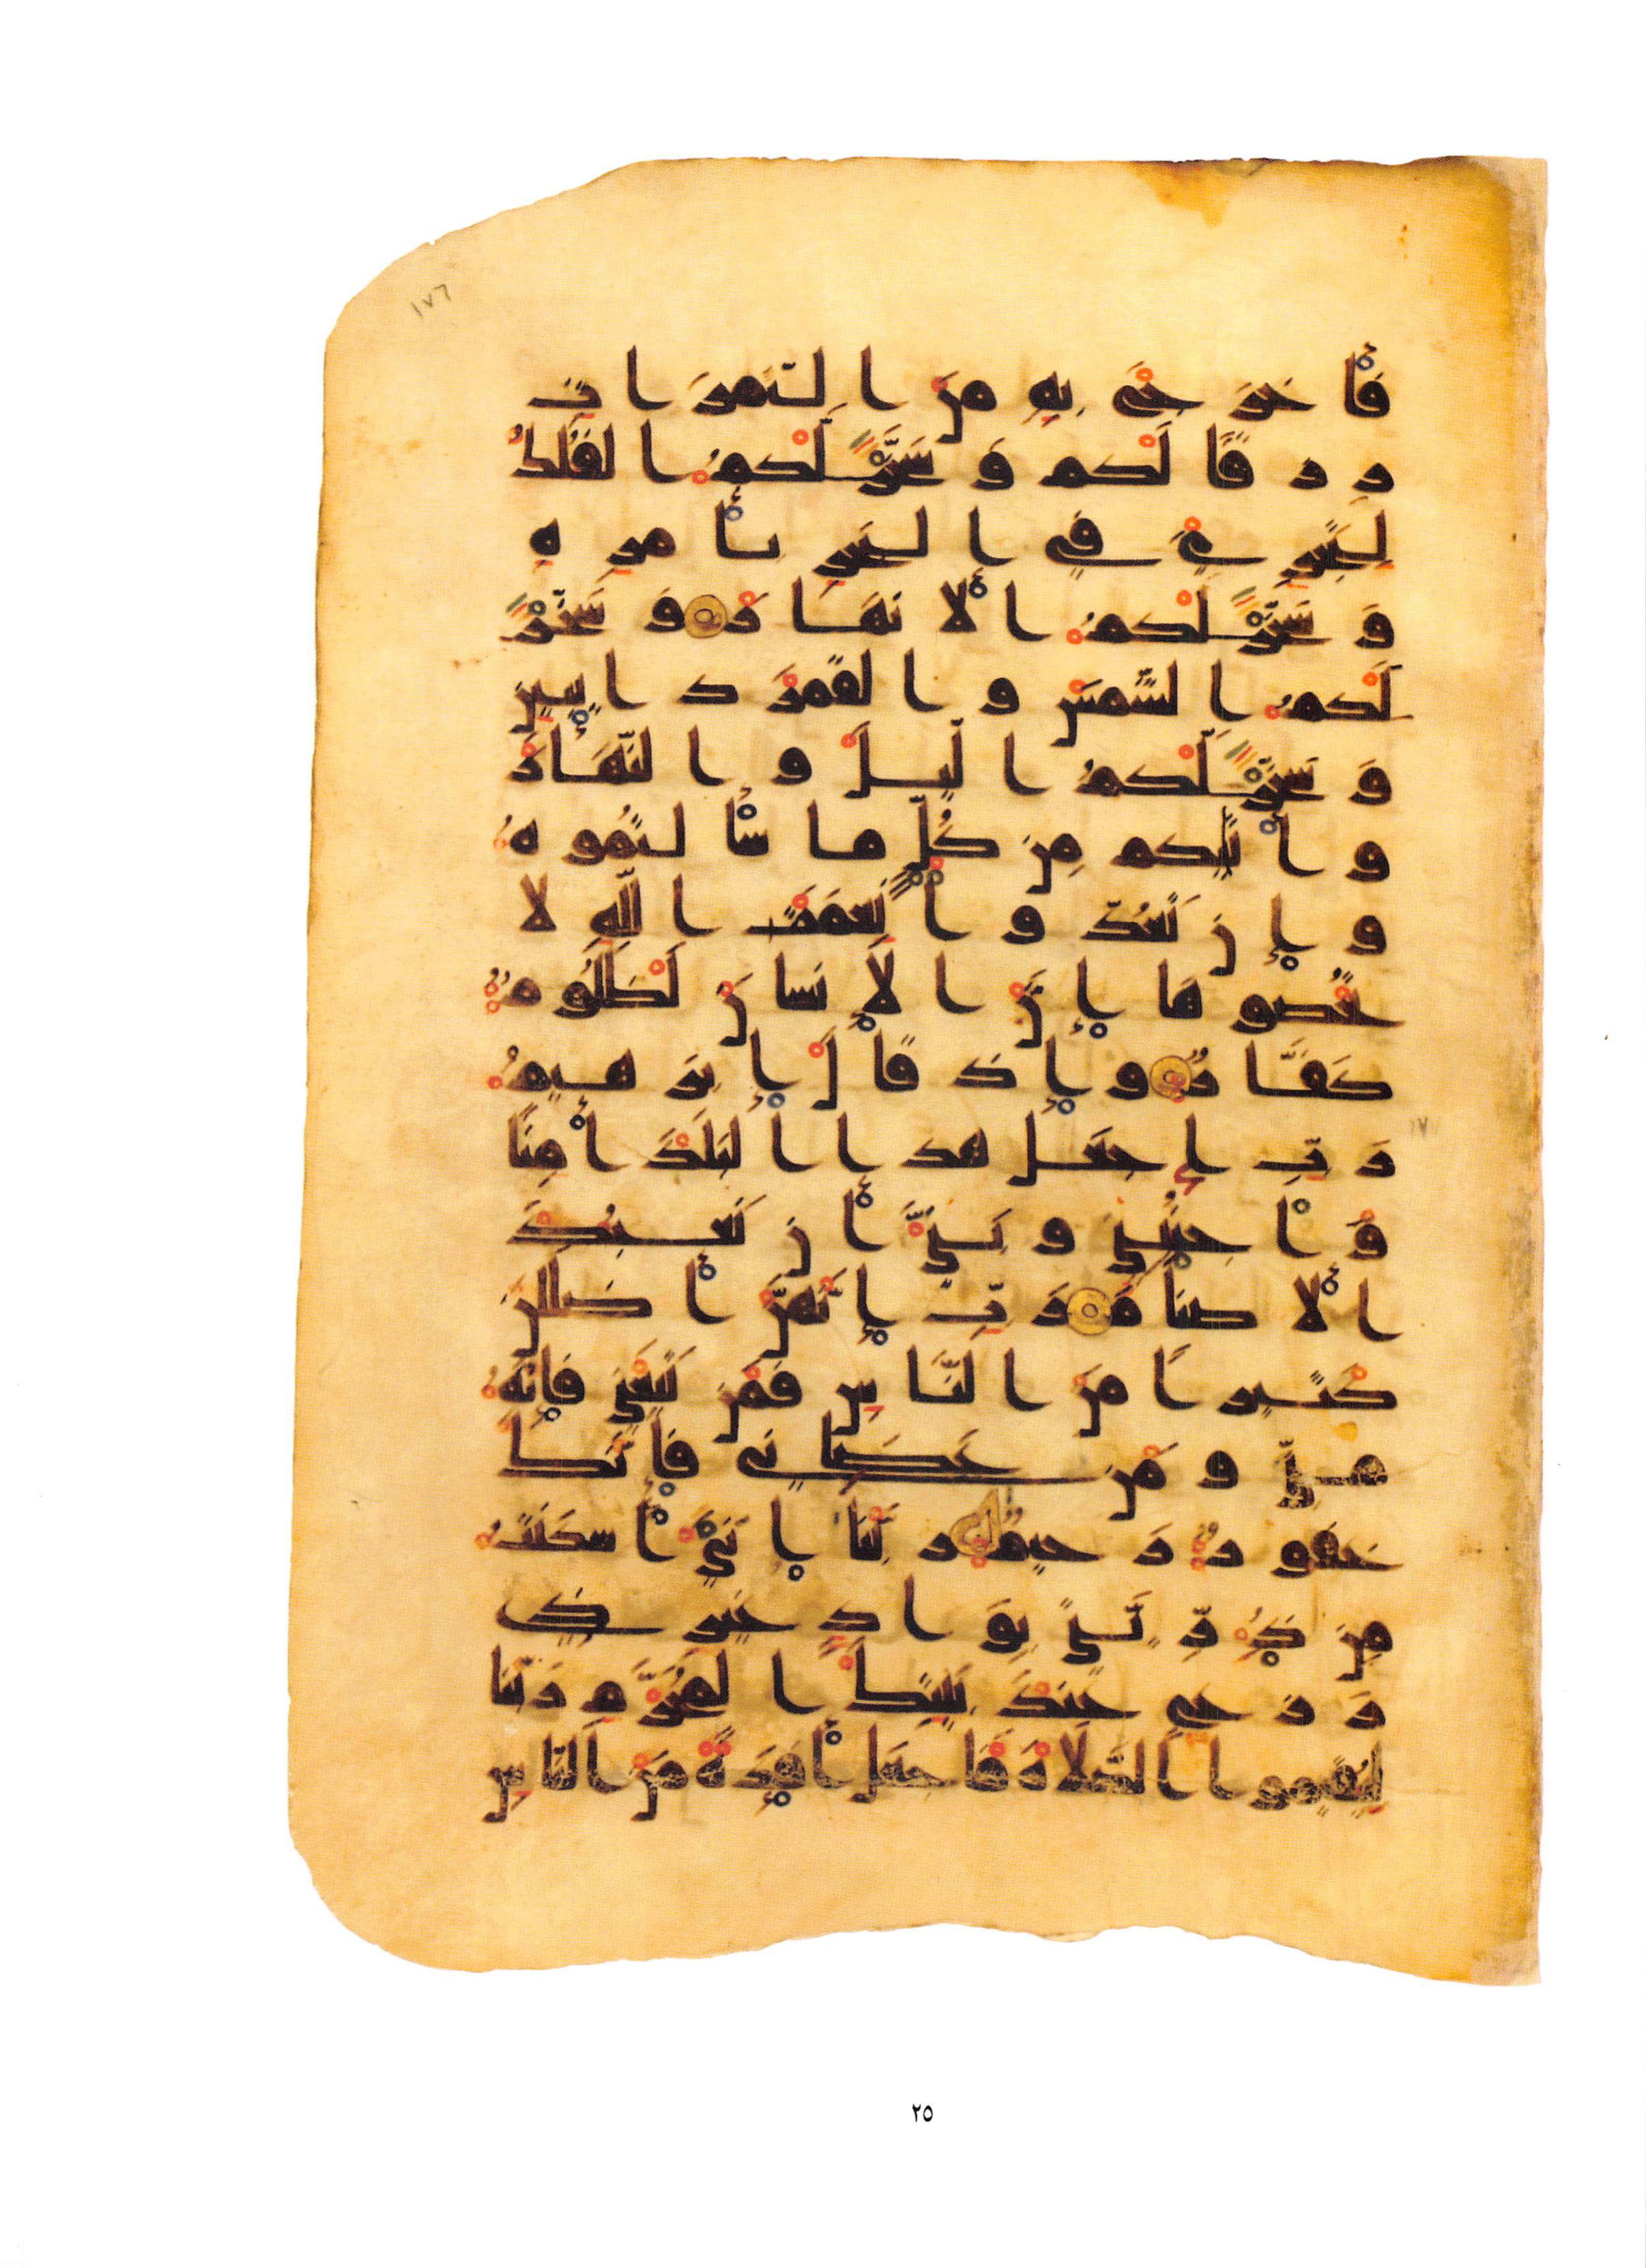 ١٧٦
فأخرج به من الثمرات
رزقا لكم وسخر لكم الفلك
لتجري في البحر بأمره
وسخر لكم الأنهار وسخر
لكم الشمس والقمر دايبين
وسخر لكم اليل والنهار
وأتيكم من كل ما سألتموه
وإن تعدوا نعمت الله لا
تحصوها إن الإنسان لظلوم
كفار وإذ قال إبرهيم
رب اجعل هذا البلد أمنا
واجنبني وبني أن نعبد
الأصنام رب إنهن أضللن
كثيرا من الناس فمن تبعني فإنه
مني ومن عصاني فإنك
غفور رحيم ربنا إني أسكنت
من ذريتي بواد غير ذي
زرع عند بيتك المحرم ربنا
ليقيموا الصلاة فاجعل أفئدة من الناس
٢٥